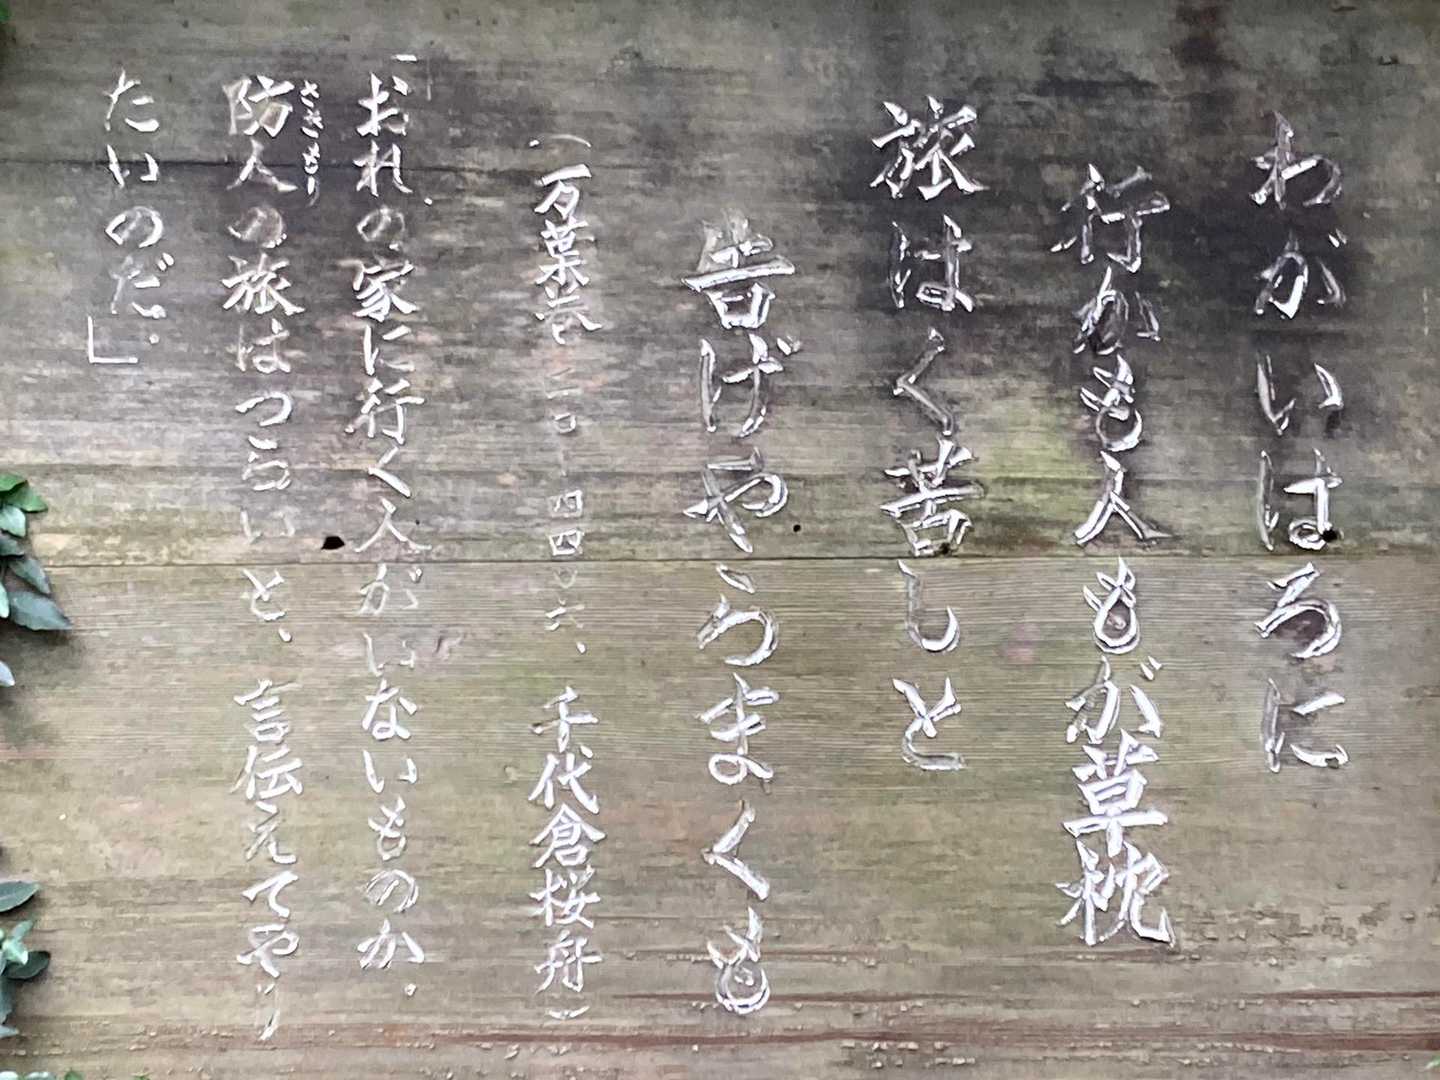 わがいはろに
行かも人もが草枕
旅はく苦しと
告げやらまくも
（万葉巻二〇・四四〇六、千代倉桜舟）
「おれの家に行く人がいないものか。
防人の旅はつらいと、言伝えてやり
さきもり
たいのだ。」